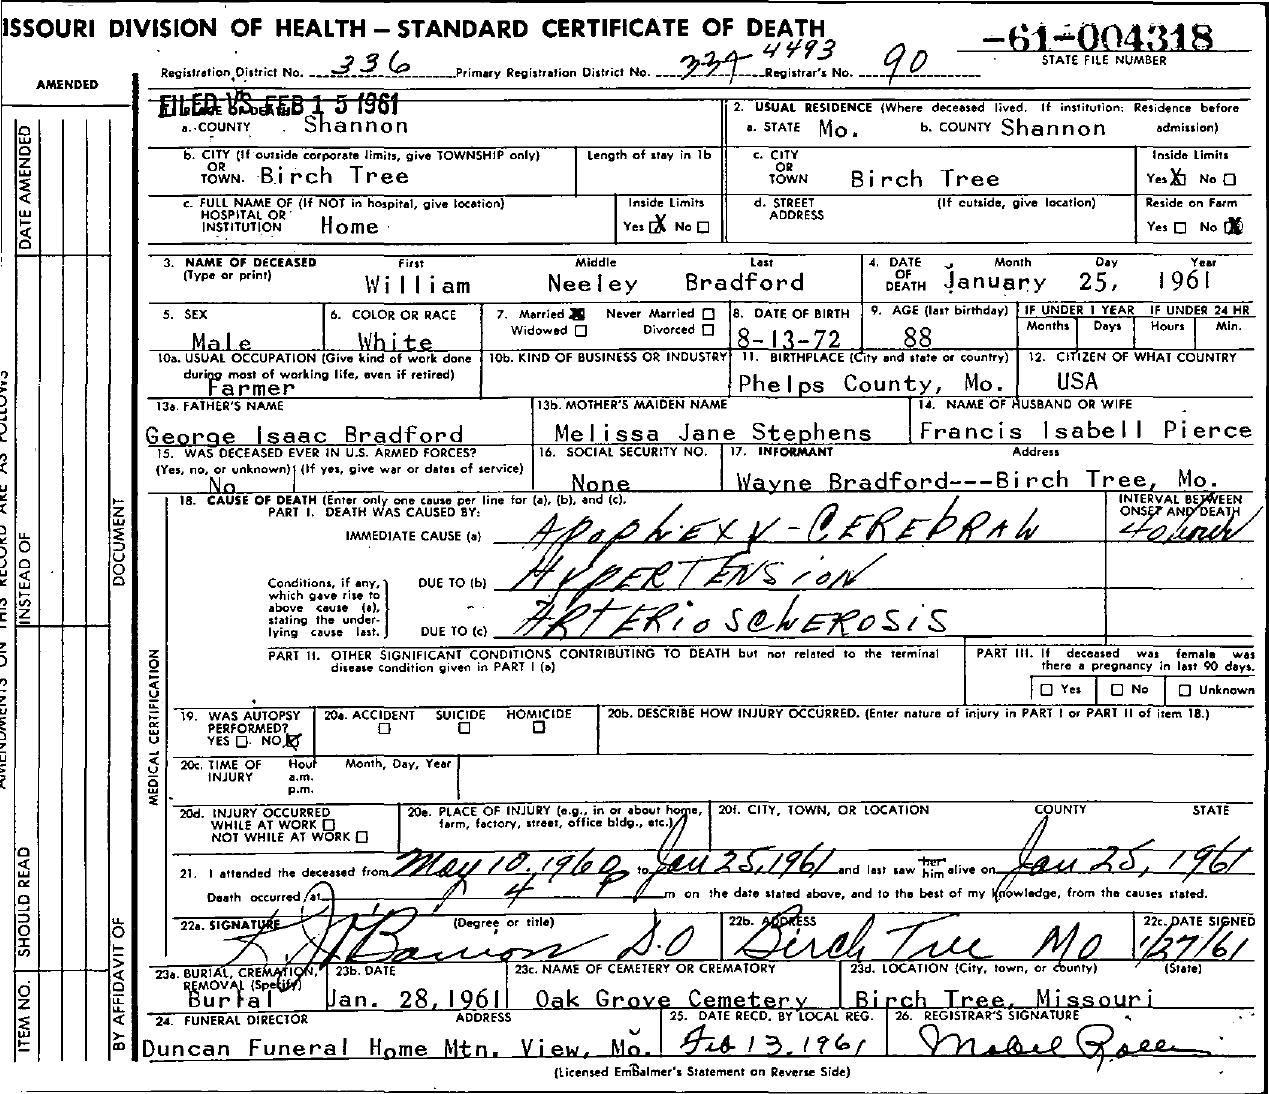 ISSOURI DIVISION OF HEALTH — STANDARD CERTIFICATE OF DEATH
-61-004318
STATE FILE NUMBER
AMENDED
Registration District No. 336 Primary Registration District No. 4493 Registrar's No. 90
FILED VS FEB 15 1961
a. COUNTY Shannon
2. USUAL RESIDENCE (Where deceased lived. If institution: Residence before admission)
a. STATE Mo. b. COUNTY Shannon
b. CITY (If outside corporate limits, give TOWNSHIP only) OR TOWN. Birch Tree
Length of stay in 1b
c. CITY OR TOWN Birch Tree
Inside Limits
Yes X No
c. FULL NAME OF (If NOT in hospital, give location) HOSPITAL OR INSTITUTION Home
Inside Limits
Yes X No
d. STREET ADDRESS (If outside, give location)
Reside on Farm
Yes No X
3. NAME OF DECEASED (Type or print)
First Middle Last
William Neeley Bradford
4. DATE OF DEATH
Month Day Year
January 25, 1961
5. SEX
Male
6. COLOR OR RACE
White
7. Married X Never Married
Widowed Divorced
8. DATE OF BIRTH
8-13-72
9. AGE (last birthday)
88
IF UNDER 1 YEAR IF UNDER 24 HR
Months Days Hours Min.
10a. USUAL OCCUPATION (Give kind of work done during most of working life, even if retired)
Farmer
10b. KIND OF BUSINESS OR INDUSTRY
11. BIRTHPLACE (City and state or country)
Phelps County, Mo.
12. CITIZEN OF WHAT COUNTRY
USA
13a. FATHER'S NAME
George Isaac Bradford
13b. MOTHER'S MAIDEN NAME
Melissa Jane Stephens
14. NAME OF HUSBAND OR WIFE
Francis Isabell Pierce
15. WAS DECEASED EVER IN U.S. ARMED FORCES?
(Yes, no, or unknown) (If yes, give war or dates of service)
No
16. SOCIAL SECURITY NO.
None
17. INFORMANT Address
Wayne Bradford---Birch Tree, Mo.
18. CAUSE OF DEATH (Enter only one cause per line for (a), (b), and (c).
PART I. DEATH WAS CAUSED BY:
INTERVAL BETWEEN ONSET AND DEATH
IMMEDIATE CAUSE (a) Apoplexy - Cerebral
Conditions, if any, which gave rise to above cause (a), stating the underlying cause last.
DUE TO (b) Hypertension
DUE TO (c) Arteriosclerosis
PART II. OTHER SIGNIFICANT CONDITIONS CONTRIBUTING TO DEATH but not related to the terminal disease condition given in PART I (a)
PART III. If deceased was female was there a pregnancy in last 90 days.
Yes No Unknown
19. WAS AUTOPSY PERFORMED?
YES NO X
20a. ACCIDENT SUICIDE HOMICIDE
20b. DESCRIBE HOW INJURY OCCURRED. (Enter nature of injury in PART I or PART II of item 18.)
20c. TIME OF INJURY Hour a.m. p.m. Month, Day, Year
20d. INJURY OCCURRED
WHILE AT WORK
NOT WHILE AT WORK
20e. PLACE OF INJURY (e.g., in or about home, farm, factory, street, office bldg., etc.)
20f. CITY, TOWN, OR LOCATION COUNTY STATE
21. I attended the deceased from May 10, 1960 to Jan 25, 1961 and last saw her him alive on Jan 25, 1961
Death occurred at 4 P m on the date stated above, and to the best of my knowledge, from the causes stated.
22a. SIGNATURE (Degree or title)
D.O
22b. ADDRESS
Birch Tree Mo
22c. DATE SIGNED
1/27/61
23a. BURIAL, CREMATION, REMOVAL (Specify)
Burial
23b. DATE
Jan. 28, 1961
23c. NAME OF CEMETERY OR CREMATORY
Oak Grove Cemetery
23d. LOCATION (City, town, or county) (State)
Birch Tree, Missouri
24. FUNERAL DIRECTOR ADDRESS
Duncan Funeral Home Mtn. View, Mo.
25. DATE RECD. BY LOCAL REG.
Feb 13, 1961
26. REGISTRAR'S SIGNATURE
Mabel
(Licensed Embalmer's Statement on Reverse Side)
AMENDMENTS ON THIS RECORD ARE AS FOLLOWS
DATE AMENDED
INSTEAD OF
DOCUMENT
SHOULD READ
ITEM NO.
BY AFFIDAVIT OF
MEDICAL CERTIFICATION